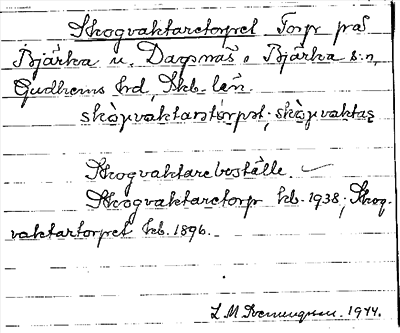 Skogvaktaretorpet Torp på
Bjärka u. Dagsnäs, Bjärka s:n,
Gudhems hd, Skb. län.
skògvaktarstórpət; skògvaktas
Skogvaktareboställe.
Skogvaktaretorp kb. 1938; Skog-
vaktartorpet kb. 1896.
L M Svenungsson. 1944.